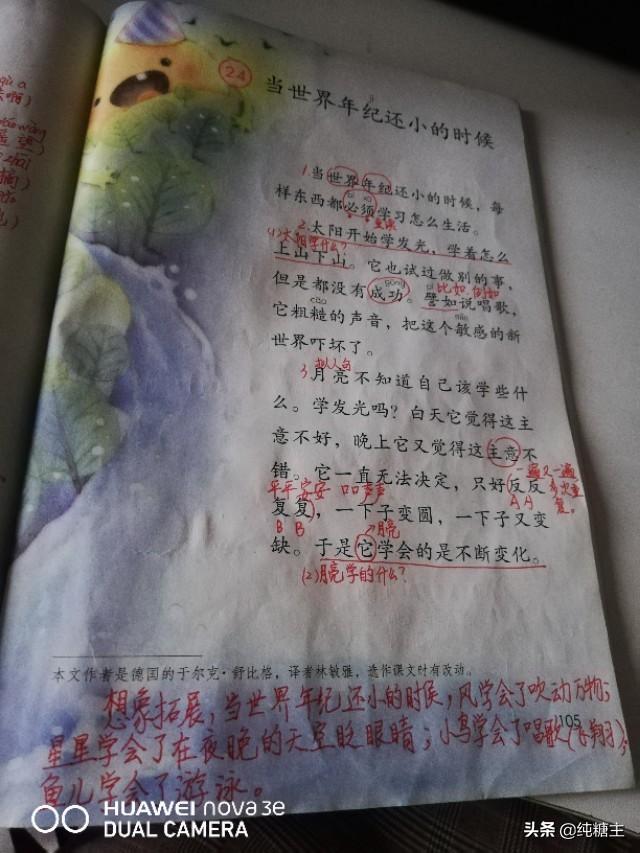 24
当世界年纪还小的时候
1.当世界年纪还小的时候，每
样东西都必须学习怎么生活。
2.太阳开始学发光，学着怎么
(1)太阳学什么？
上山下山。它也试过做别的事，
比如 例如
但是都没有成功。譬如说唱歌，
它粗糙的声音，把这个敏感的新
世界吓坏了。
拟人句
3.月亮不知道自己该学些什
么。学发光吗？白天它觉得这主
意不好，晚上它又觉得这主意不
一遍又一遍
错。它一直无法决定，只好反反
多次重
复。
平平安安 叩叩声声
A A
复复，一下子变圆，一下子又变
B B
月亮
缺。于是它学会的是不断变化。
(2)月亮学的什么？
本文作者是德国的于尔克·舒比格，译者林敏雅，选作课文时有改动。
想象拓展，当世界年纪还小的时候，风学会了吹动万物；
105
星星学会了在夜晚的天空眨眼睛；小鸟学会了唱歌(飞翔)；
鱼儿学会了游泳。
HUAWEI nova 3e
DUAL CAMERA
头条 @纯糖主